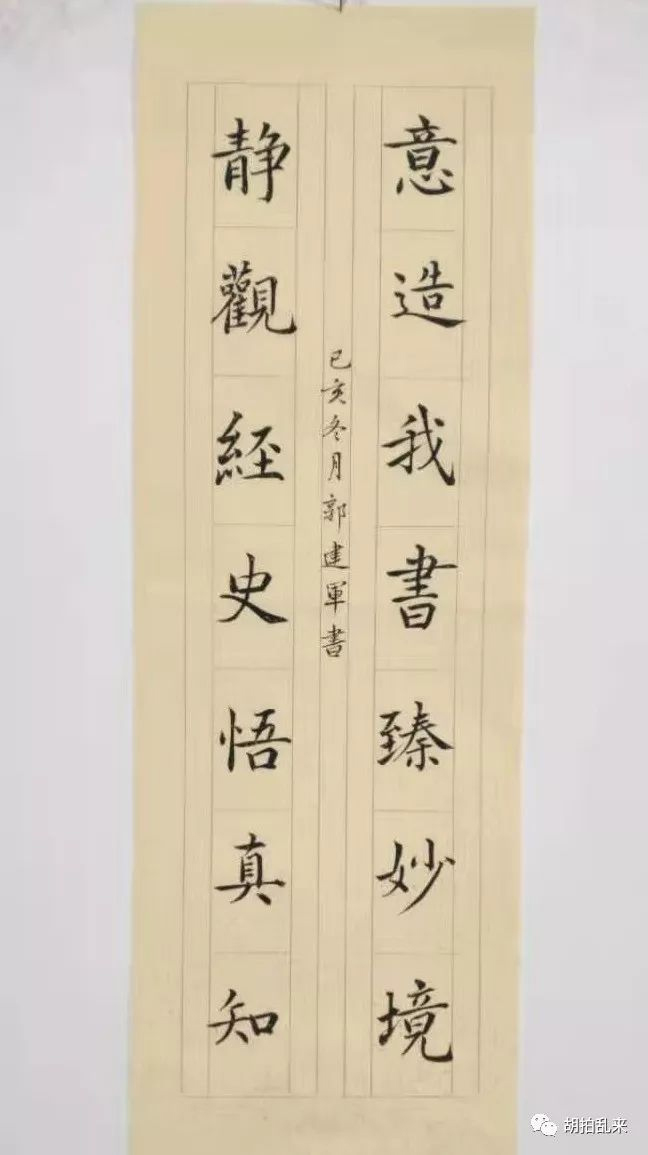 意造我書臻妙境
己亥冬月郭建軍書
静觀經史悟真知
胡拍乱来